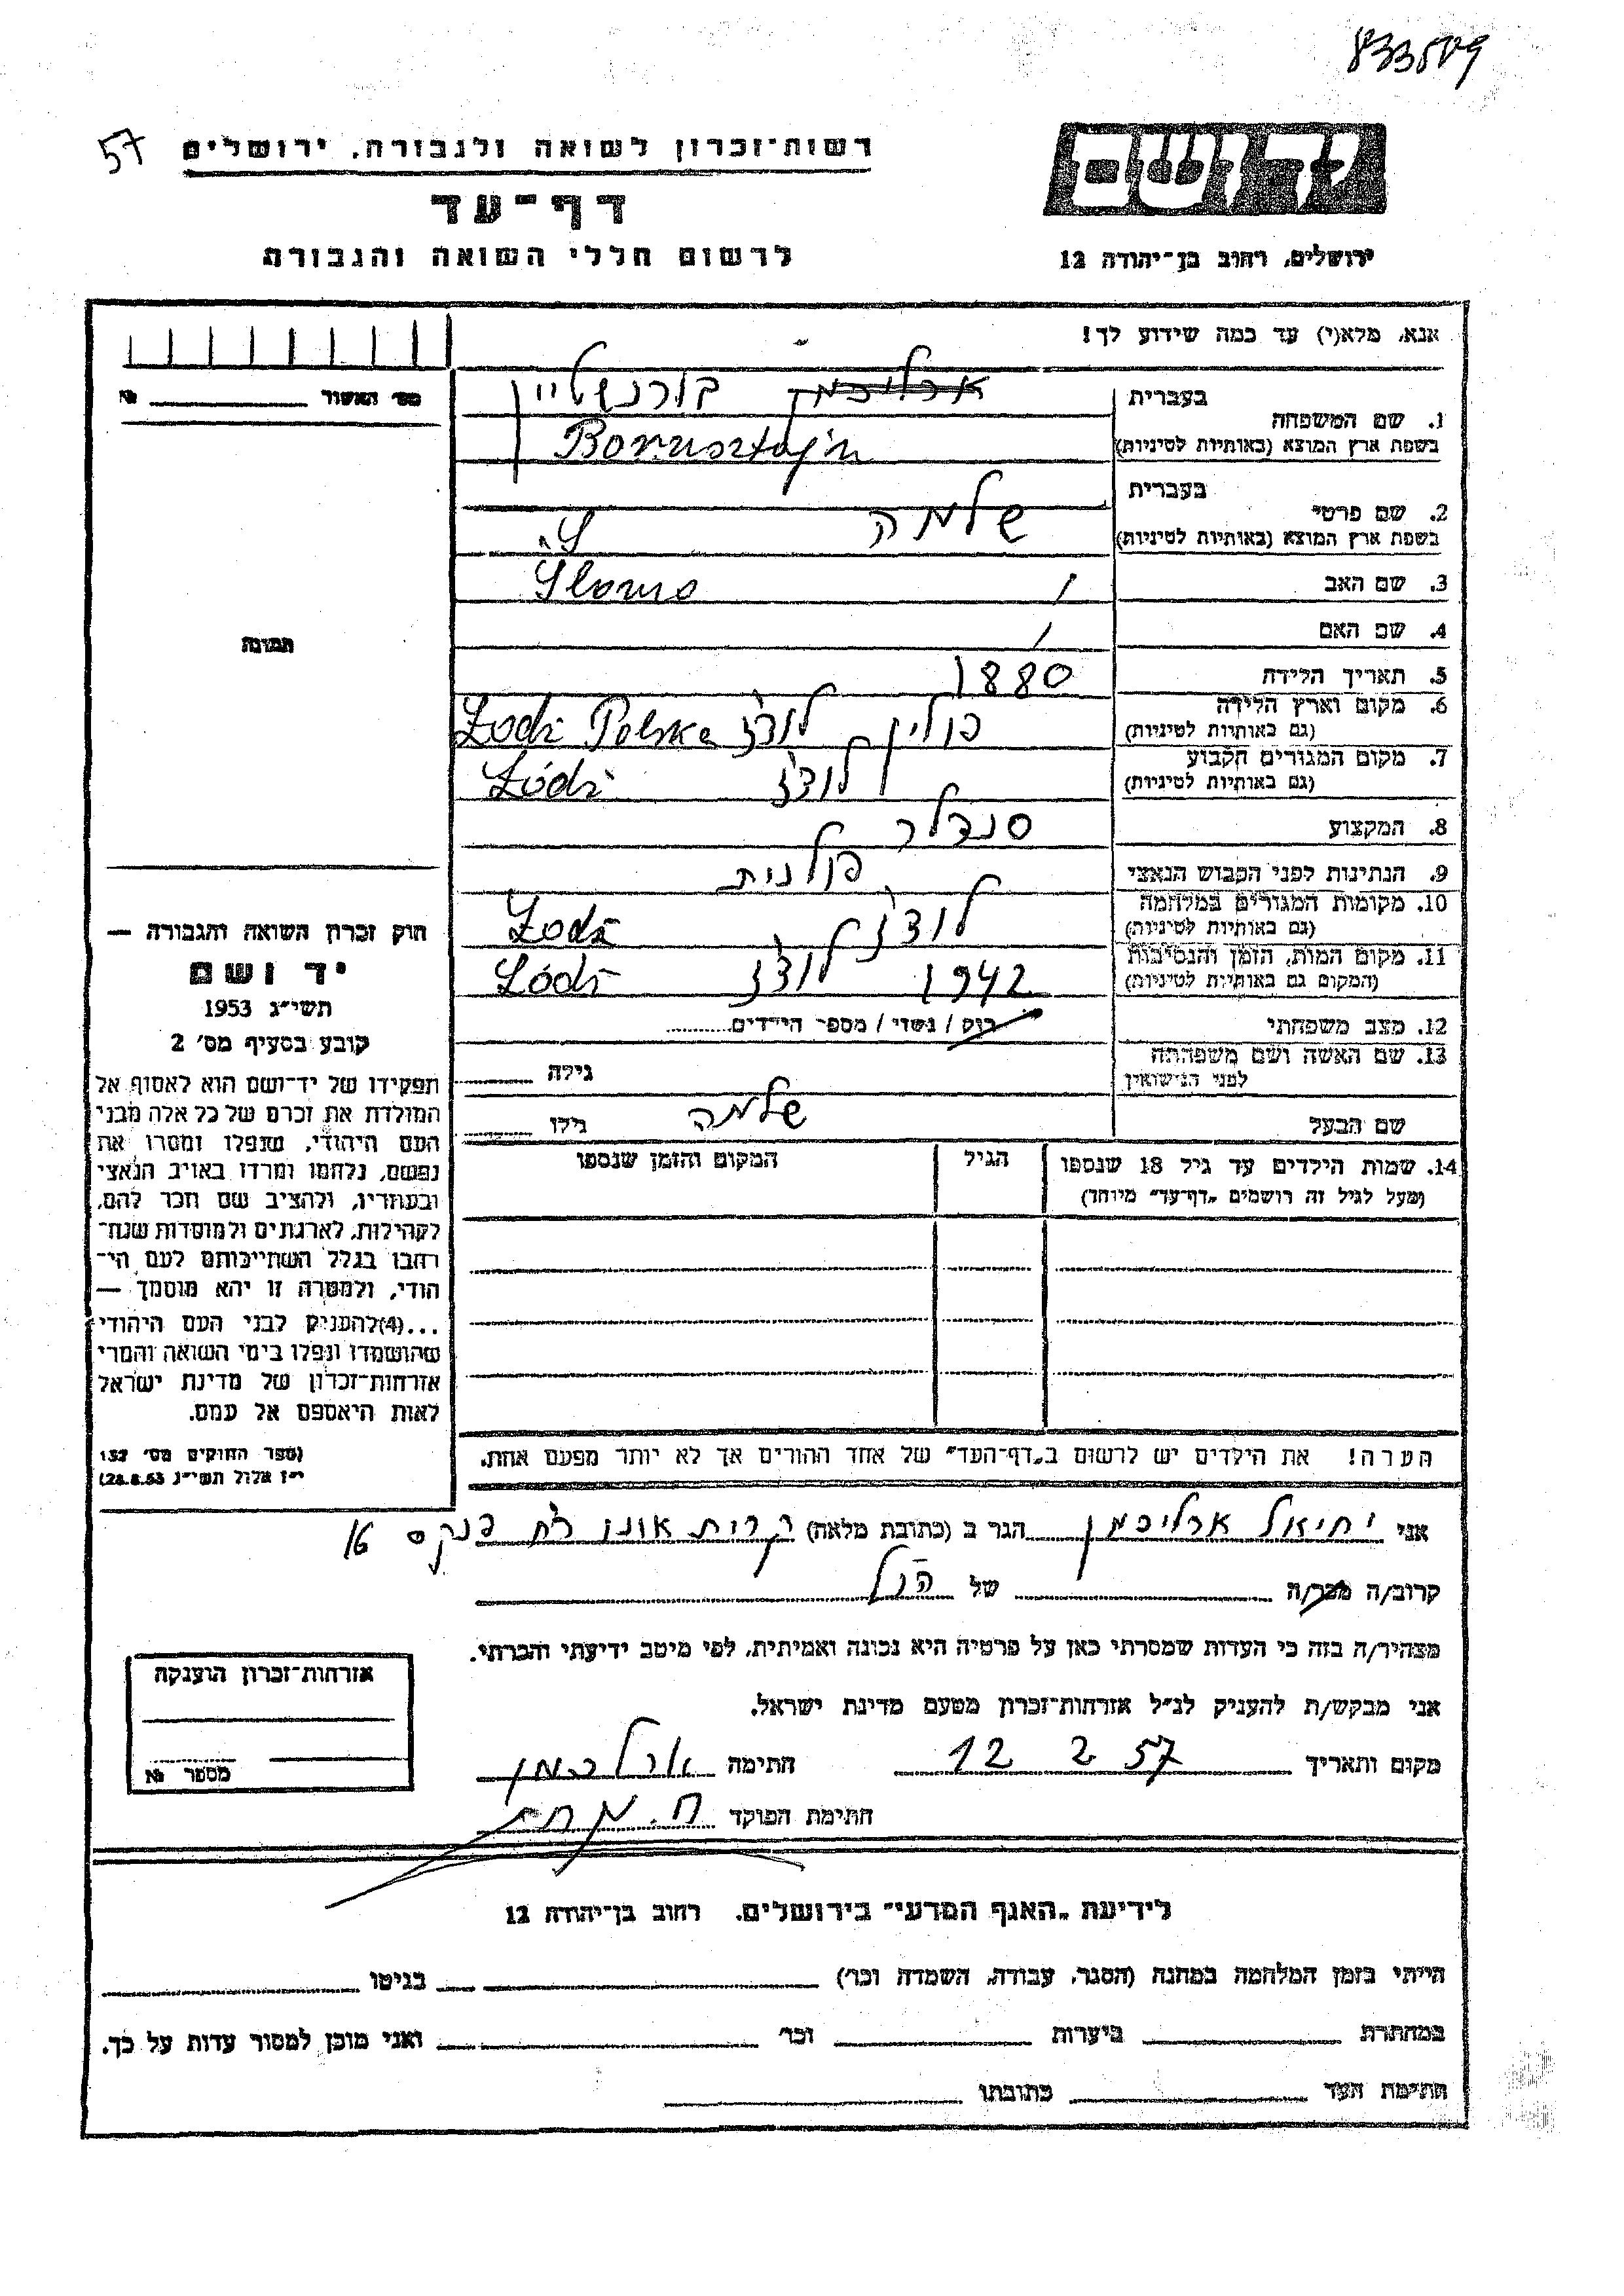 833509
57
רשות-זכרון לשואה ולגבורה, ירושלים
דף-עד
לרשום חללי השואה והגבורה
ירושלים, רחוב בן-יהודה 12
אנא, מלא(י) עד כמה שידוע לך!
מס' האשור №
1. שם המשפחה בעברית בורנשטיין
בשפת ארץ המוצא (באותיות לטיניות) Bornsztajn
2. שם פרטי בעברית שלמה
בשפת ארץ המוצא (באותיות לטיניות)
3. שם האב / Slomo
4. שם האם /
5. תאריך הלידה 1880
6. מקום וארץ הלידה (גם באותיות לטיניות) פולין לודז' Łodź Polska
7. מקום המגורים הקבוע (גם באותיות לטיניות) לודז' Łódź
8. המקצוע סנדלר
9. הנתינות לפני הכבוש הנאצי פולנית
10. מקומות המגורים במלחמה (גם באותיות לטיניות) לודז' Łodź
11. מקום המות, הזמן והנסיבות (המקום גם באותיות לטיניות) 1942 לודז' Łódź
12. מצב משפחתי רוק / נשוי / מספר הילדים
13. שם האשה ושם משפחתה לפני הנישואין גילה
שם הבעל שלמה גילו
14. שמות הילדים עד גיל 18 שנספו הגיל המקום והזמן שנספו
(מעל לגיל זה רושמים "דף-עד" מיוחד)
הערה! את הילדים יש לרשום ב"דף-העד" של אחד ההורים אך לא יותר מפעם אחת.
תמונה
חוק זכרון השואה והגבורה —
יד ושם
תשי"ג 1953
קובע בסעיף מס' 2
תפקידו של יד-ושם הוא לאסוף אל
המולדת את זכרם של כל אלה מבני
העם היהודי, שנפלו ומסרו את
נפשם, נלחמו ומרדו באויב הנאצי
ובעוזריו, ולהציב שם וזכר להם,
לקהילות, לארגונים ולמוסדות שנח-
רבו בגלל השתייכותם לעם הי-
הודי, ולמטרה זו יהא מוסמך —
...(4)להעניק לבני העם היהודי
שהושמדו ונפלו בימי השואה והמרי
אזרחות-זכרון של מדינת ישראל
לאות היאספם אל עמם.
(ספר החוקים מס' 132
י"ז אלול תשי"ג 28.8.53)
אני יחיאל ארליכמן הגר ב (כתובת מלאה) קרית אונו רח' פנקס 16
קרוב/ה מכר/ה של הנ"ל
מצהיר/ה בזה כי העדות שמסרתי כאן על פרטיה היא נכונה ואמיתית, לפי מיטב ידיעתי והכרתי.
אני מבקש/ת להעניק לנ"ל אזרחות-זכרון מטעם מדינת ישראל.
מקום ותאריך 12 2 57 חתימה ארליכמן
חתימת הפוקד
אזרחות-זכרון הוענקה
מספר №
לידיעת "האגף המדעי" בירושלים. רחוב בן-יהודה 12
הייתי בזמן המלחמה במחנה (הסגר, עבודה, השמדה וכו') בגיטו
במחתרת ביערות וכו' ואני מוכן למסור עדות על כך.
חתימת העד כתובתו